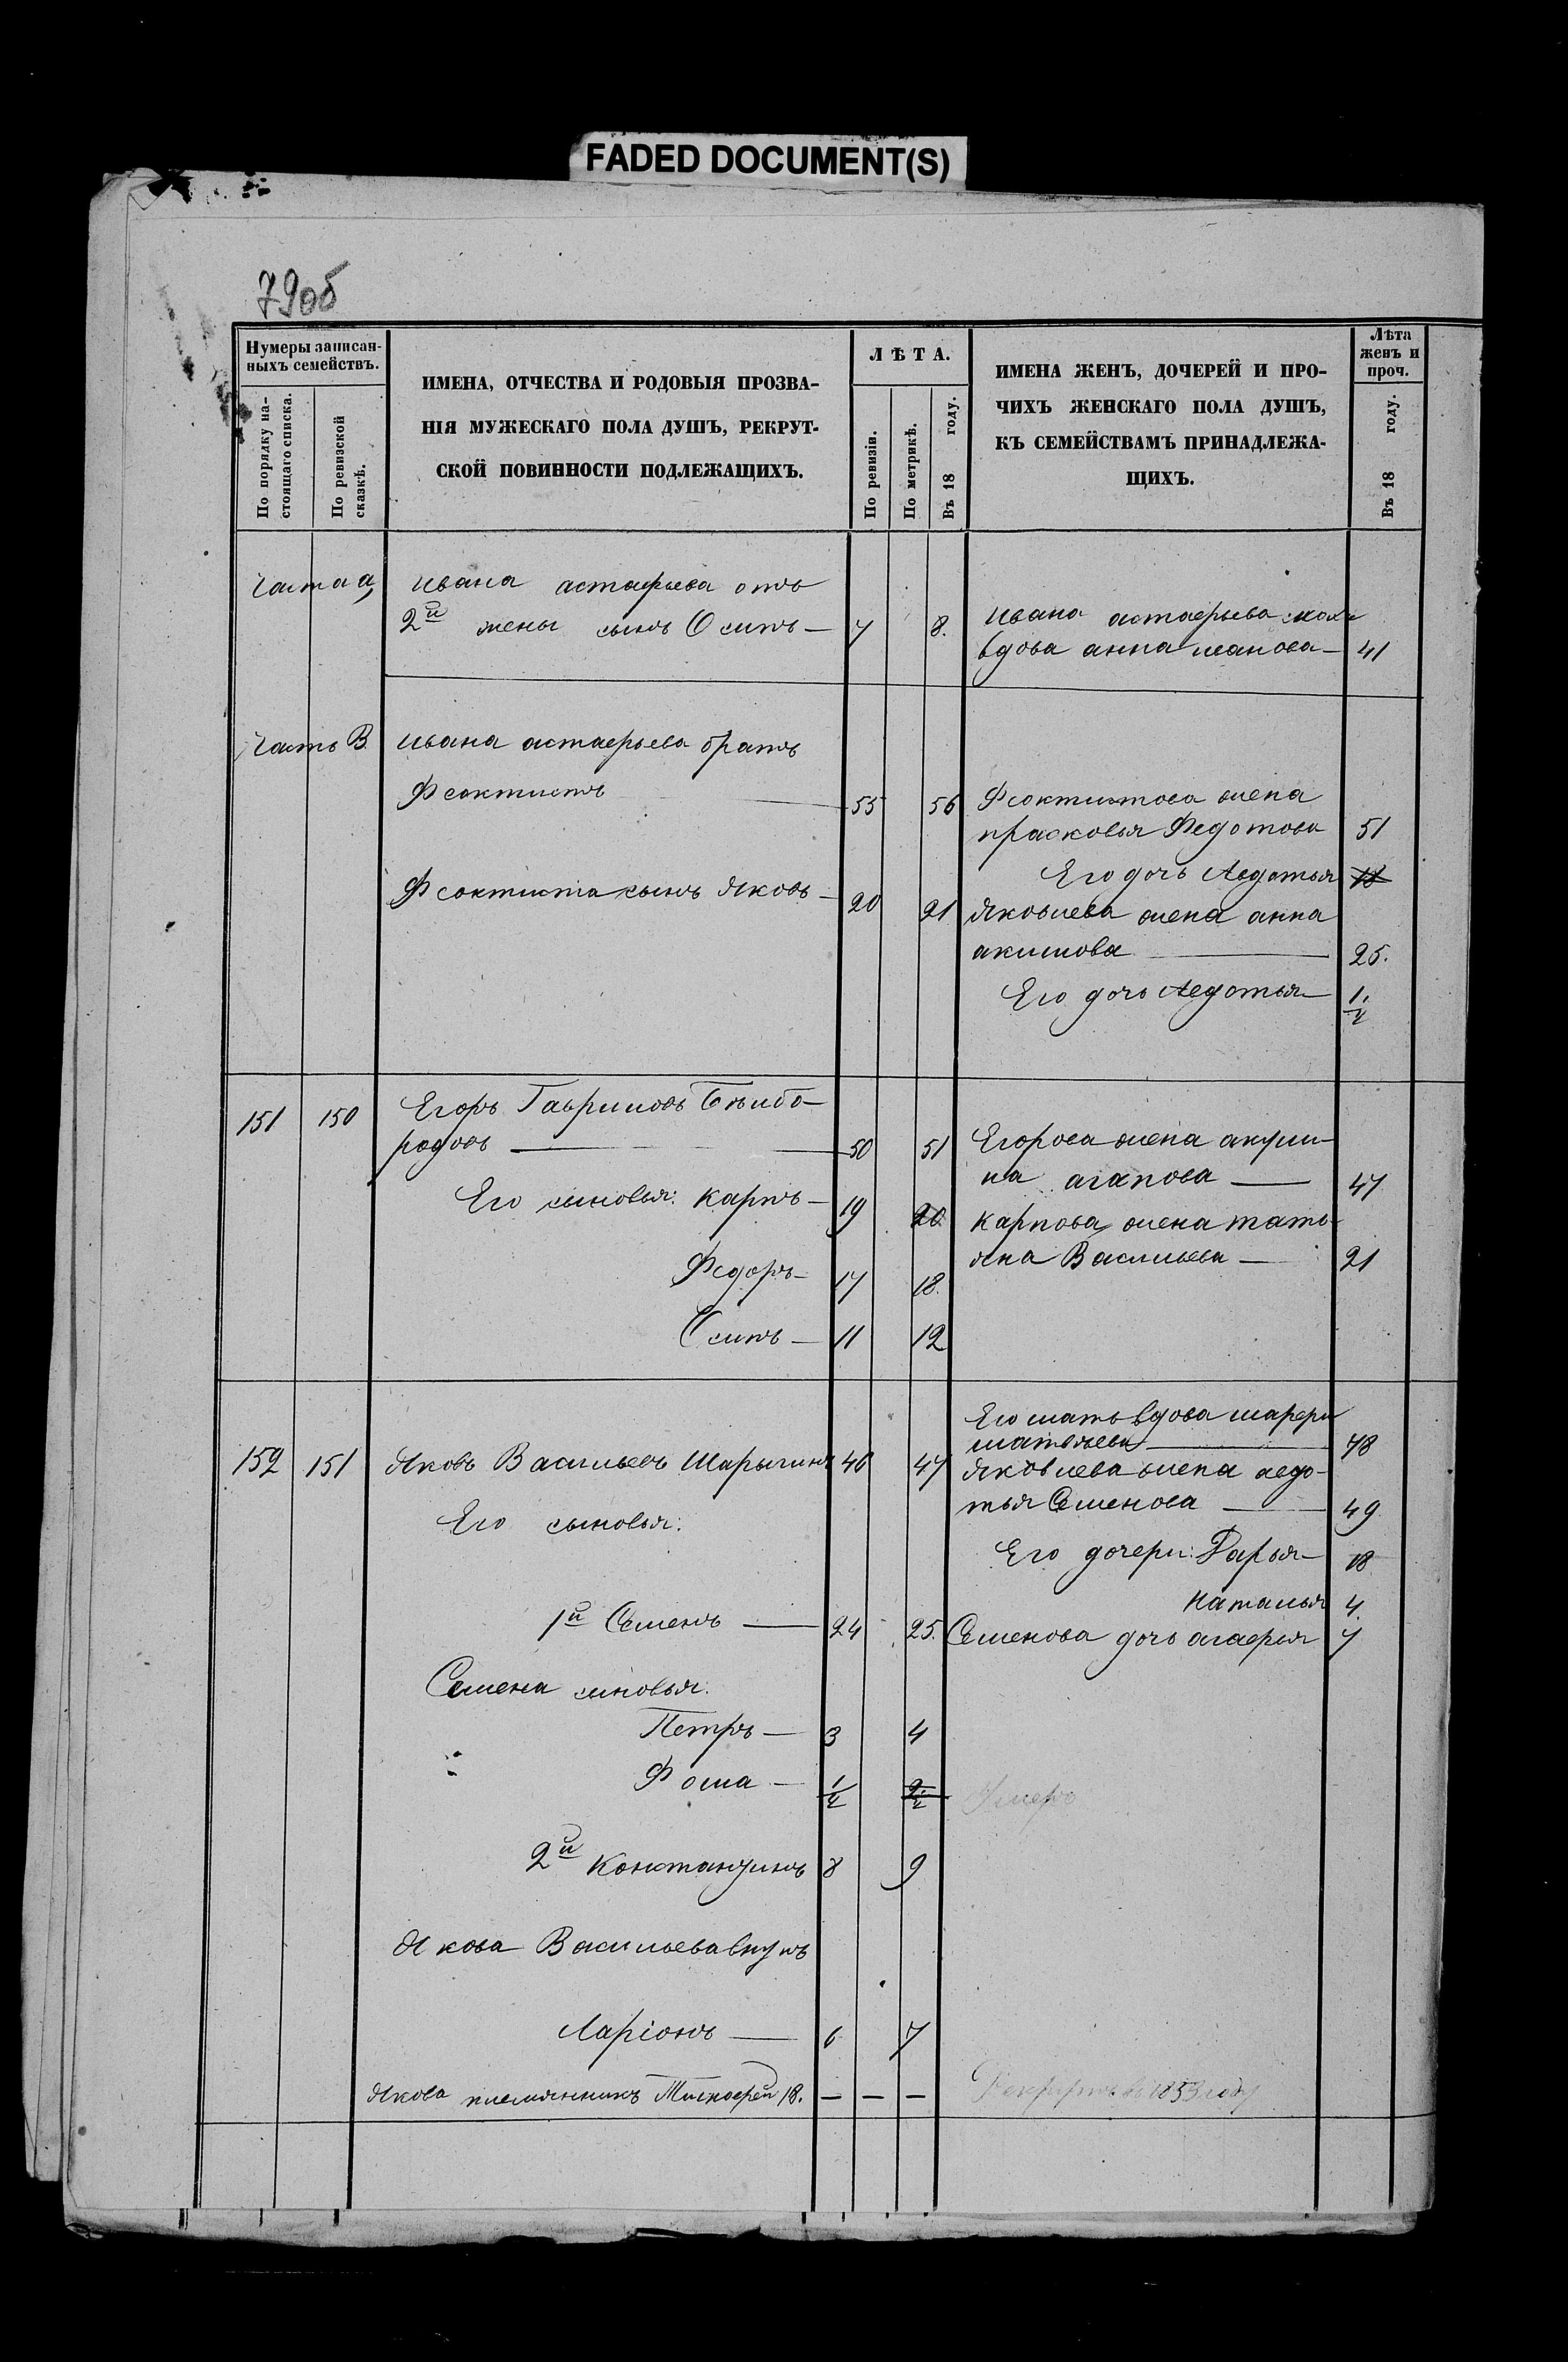 FADED DOCUMENT(S)
79об
Нумеры записан-
ныхъ семействъ.
По порядку на-
стоящаго списка.
По ревизской
сказкѣ.
ИМЕНА, ОТЧЕСТВА И РОДОВЫЯ ПРОЗВА-
НІЯ МУЖЕСКАГО ПОЛА ДУШЪ, РЕКРУТ-
СКОЙ ПОВИННОСТИ ПОДЛЕЖАЩИХЪ.
ЛѢТА.
По ревизіи.
По метрикѣ.
Въ 18 году.
ИМЕНА ЖЕНЪ, ДОЧЕРЕЙ И ПРО-
ЧИХЪ ЖЕНСКАГО ПОЛА ДУШЪ,
КЪ СЕМЕЙСТВАМЪ ПРИНАДЛЕЖА-
ЩИХЪ.
Лѣта
женъ и
проч.
Въ 18 году.
Часть а, Ивана астафьева отъ
2й жены сынъ Осипъ — 7 8.
Ивана астафьева
вдова анна иванова — 41
Часть В Ивана астафьева братъ
Феоктистъ — 55 56 Феоктистова жена
прасковья Федотова 51
Его дочь Авдотья 18
Феоктиста сынъ Яковъ — 20 21 Яковлева жена анна
акимова — 25.
Его дочь Авдотья — 1/2
151 150 Егоръ Гавриловъ Бѣлобо-
родовъ — 50 51 Егорова жена акули-
на агапова — 47
Его сыновья: Карпъ — 19 20 Карпова жена тать-
яна Васильева — 21
Федоръ — 17 18.
Осипъ — 11 12
Его мать вдова марфа
матвѣева — 78
152 151 Яковъ Васильевъ Шарыгинъ 46 47 Яковлева жена авдо-
тья Семенова — 49
Его сыновья:
Его дочери: Дарья — 18
Наталья 4.
1й Семенъ — 24 25. Семенова дочь агафья 7
Семена сыновья:
Петръ — 3 4
Фома — 1/2 2 1/2 Умеръ
2й Константинъ 8 9
Якова Васильева внукъ
Ларіонъ — 6 7
Якова племянникъ Тимофей 18. — — — Рекрутъ въ 1853 году